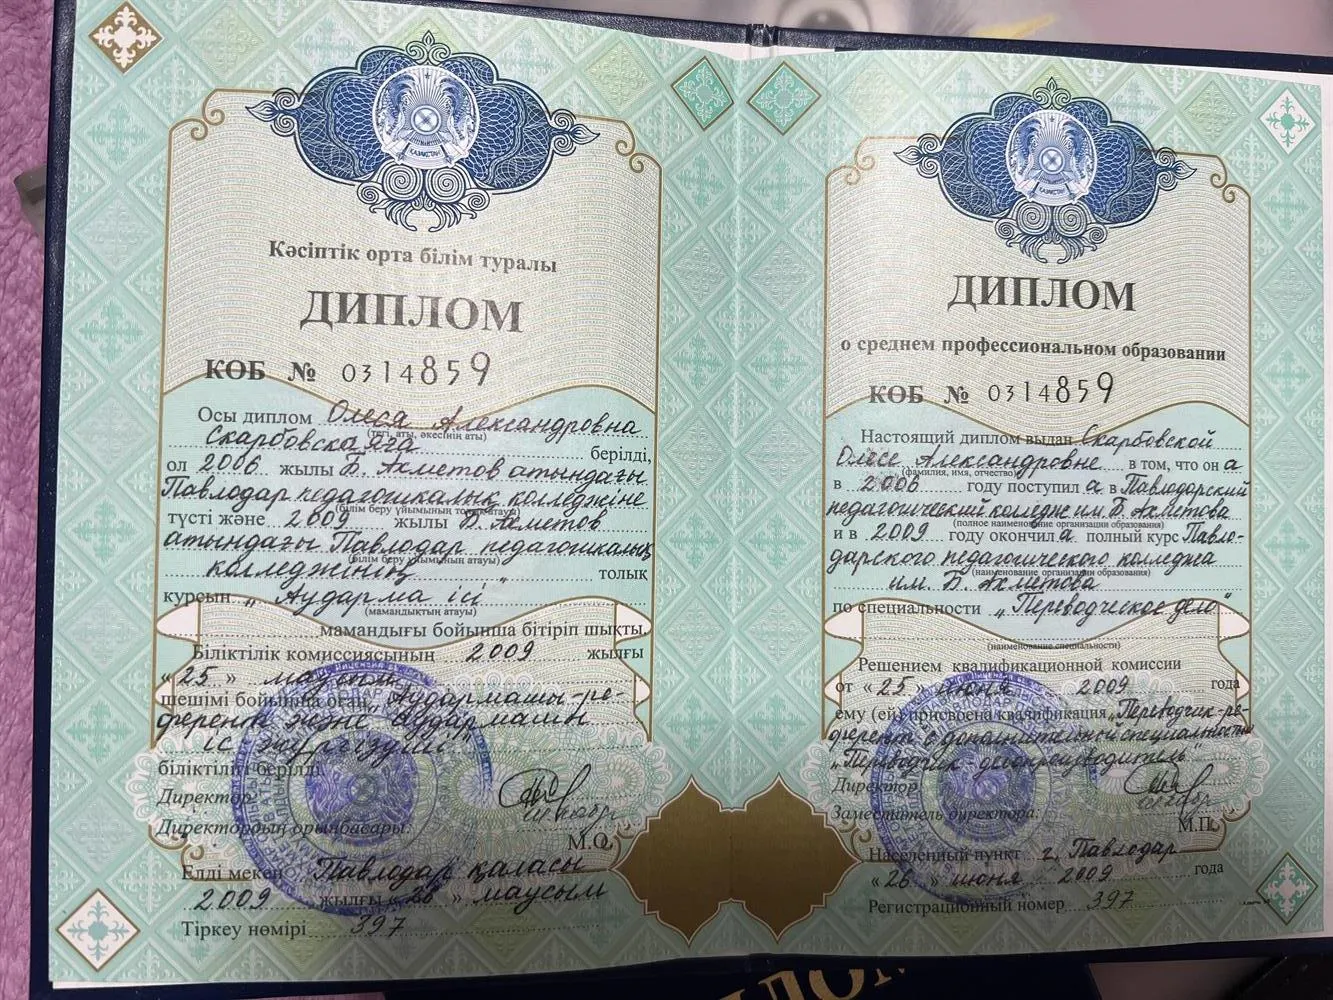 ҚАЗАҚСТАН
Кәсіптік орта білім туралы
ДИПЛОМ
КОБ № 0314859
Осы диплом Олеся Александровна
(тегі, аты, әкесінің аты)
Скарбовскаяға берілді,
ол 2006 жылы Б. Ахметов атындағы
Павлодар педагогикалық колледжіне
(білім беру ұйымының толық атауы)
түсті және 2009 жылы Б. Ахметов
атындағы Павлодар педагогикалық
(білім беру ұйымының атауы)
колледжінің толық
курсын „Аударма ісі"
(мамандықтың атауы)
мамандығы бойынша бітіріп шықты.
Біліктілік комиссиясының 2009 жылғы
« 25 » маусым
шешімі бойынша оған „Аудармашы-ре-
ферент және аудармашы
іс жүргізуші"
біліктілігі берілді.
Директор
Директордың орынбасары.
М.О.
Елді мекен Павлодар қаласы
2009 жылғы « 26 » маусым
Тіркеу нөмірі 397
ҚАЗАҚСТАН
ДИПЛОМ
о среднем профессиональном образовании
КОБ № 0314859
Настоящий диплом выдан Скарбовской
Олесе Александровне в том, что он а
(фамилия, имя, отчество)
в 2006 году поступил а в Павлодарский
педагогический колледж им. Б. Ахметова
(полное наименование организации образования)
и в 2009 году окончил а полный курс Павло-
дарского педагогического колледжа
(наименование организации образования)
им. Б. Ахметова
по специальности „Переводческое дело"
(наименование специальности)
Решением квалификационной комиссии
от « 25 » июня 2009 года
ему (ей) присвоена квалификация „Переводчик-ре-
ферент с дополнительной специальностью
„Переводчик-делопроизводитель"
Директор
Заместитель директора.
М.П.
Населенный пункт г. Павлодар
« 26 » июня 2009 года
Регистрационный номер 397